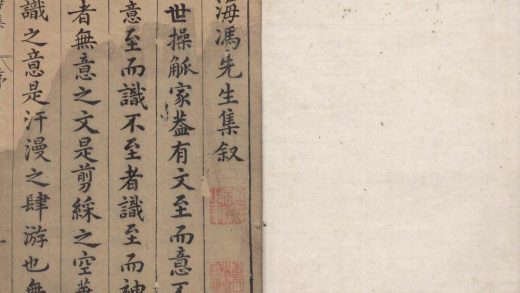 海馮先生集叙
世操觚家蓋有文至而意不
意至而識不至者識至而神
者無意之文是剪綵之空華
識之意是汗漫之肆游也無